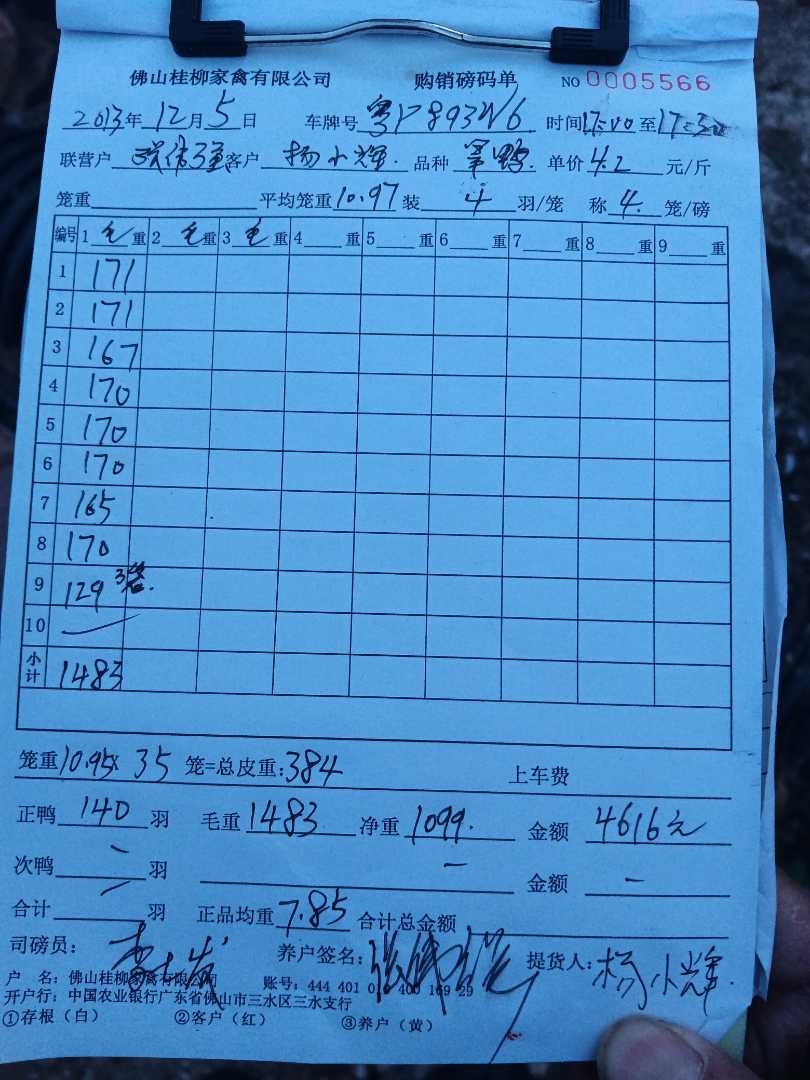 佛山桂柳家禽有限公司 购销磅码单 NO 0005566
2013年12月5日 车牌号 粤Y893W6 时间17:00至17:30
联营户 客户 杨小辉 品种 单价4.2元/斤
笼重 平均笼重10.97装4羽/笼 称4.笼/磅
编号 1毛重 2毛重 3毛重 4重 5重 6重 7重 8重 9重
1 171
2 171
3 167
4 170
5 170
6 170
7 165
8 170
9 129 3笼.
10 —
小计 1483
笼重10.95x35笼=总皮重:384 上车费
正鸭140羽 毛重1483 净重1099. 金额4616元
次鸭-羽 - 金额-
合计羽 正品均重7.85合计总金额
司磅员: 养户签名: 提货人:杨小辉.
户名:佛山桂柳家禽有限公司 账号:444 401 0 400 169 29
开户行:中国农业银行广东省佛山市三水区三水支行
①存根(白) ②客户(红) ③养户(黄)